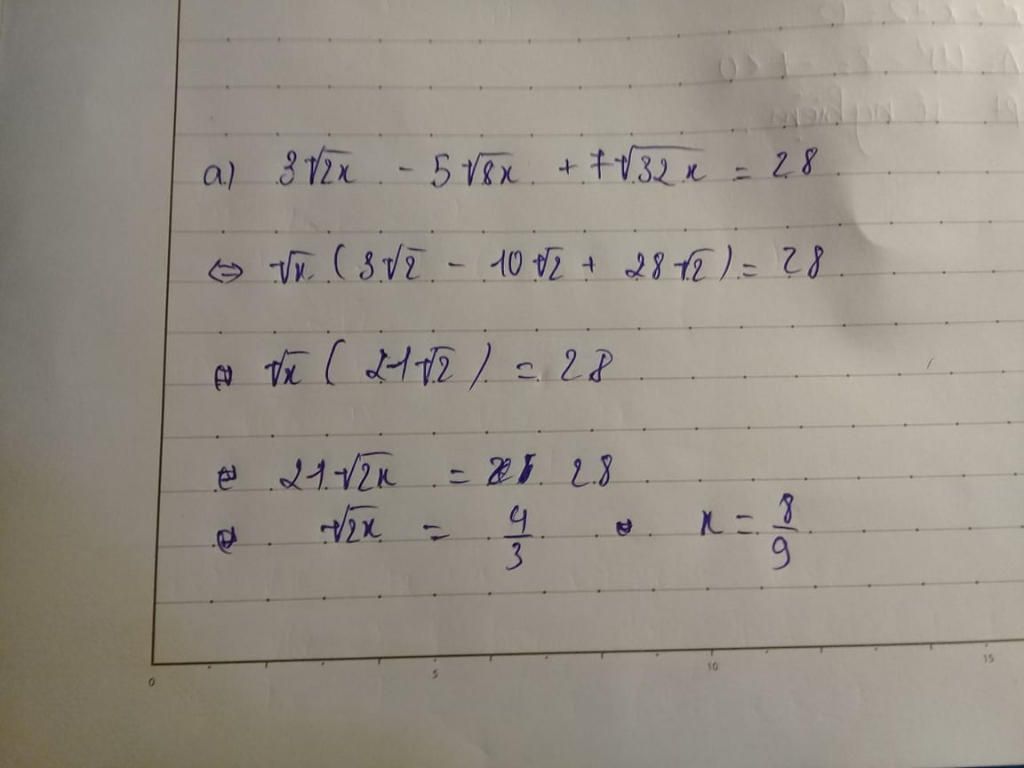 a) 3√2x - 5√8x + 7√32x = 28
⇔ √x (3√2 - 10√2 + 28√2) = 28
⇔ √x (21√2) = 28
⇔ 21√2x = 28
⇔ √2x = 4/3 ⇔ x = 8/9
0 5 10 15